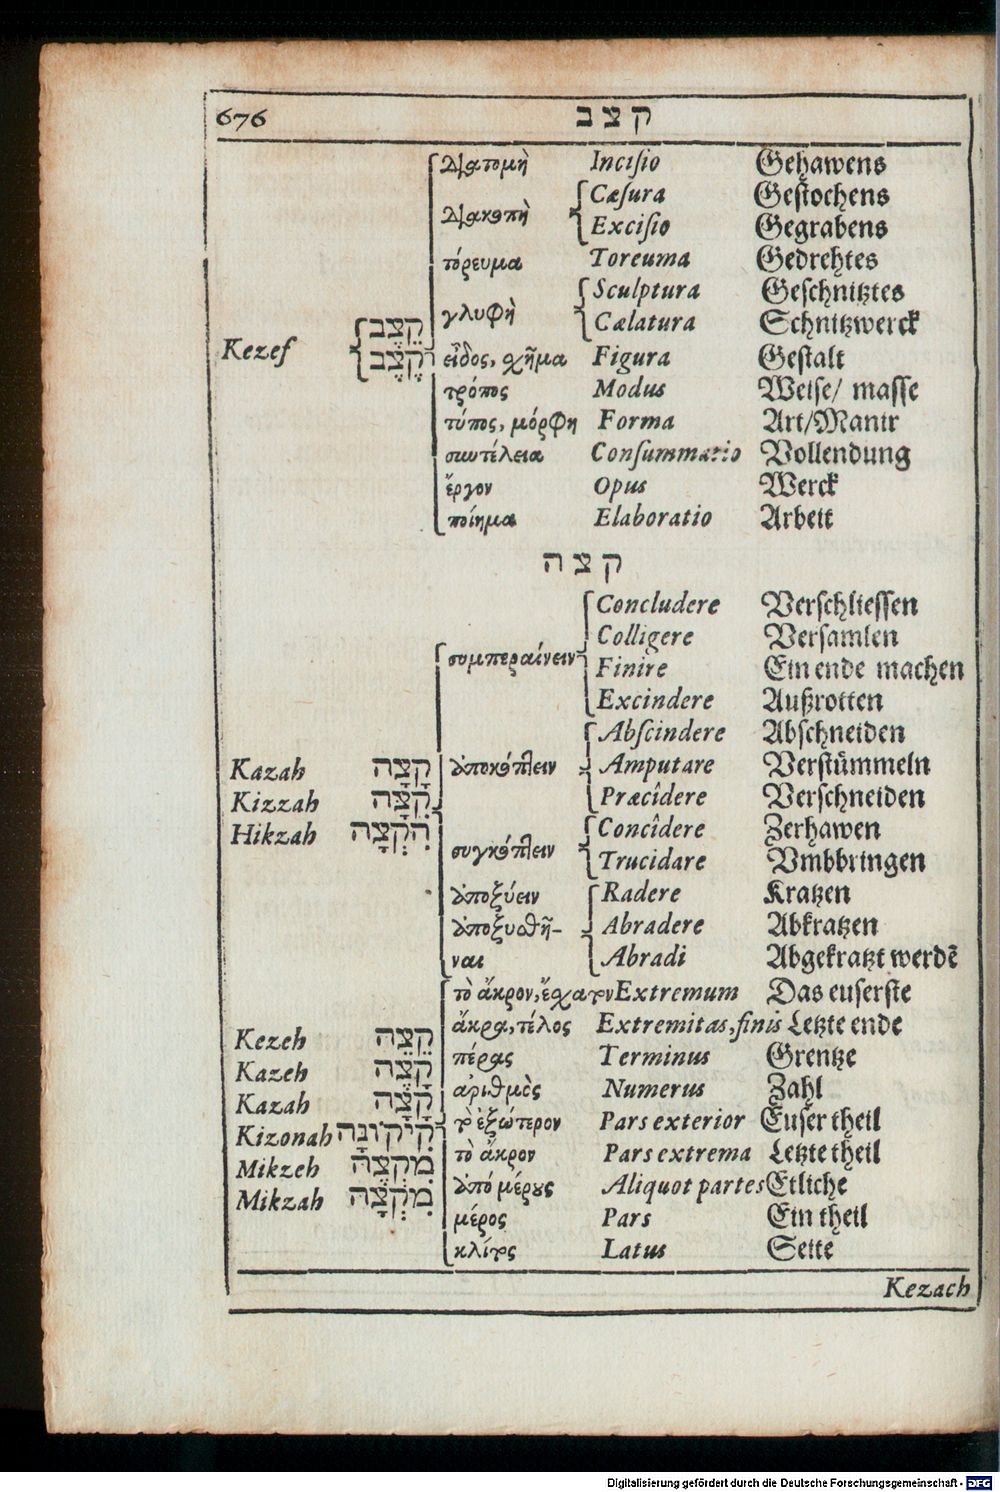 676 קצב
διατομὴ Inciſio Gehawens
Cæſura Geſtochens
διακοπὴ
Exciſio Gegrabens
τόρευμα Toreuma Gedrehtes
Sculptura Geſchnitztes
γλυφὴ
קֶצֶב Cælatura Schnitzwerck
Kezef קֶצֶב εἶδος, σχῆμα Figura Geſtalt
τρόπος Modus Weiſe/ maſſe
τύπος, μόρφη Forma Art/Manir
συντέλεια Conſummatio Vollendung
ἔργον Opus Werck
ποίημα Elaboratio Arbeit
קצה
Concludere Verſchlieſſen
Colligere Verſamlen
συμπεραίνειν Finire Ein ende machen
Excindere Außrotten
Abſcindere Abſchneiden
Kazah קָצָה ἀποκόπτειν Amputare Verſtümmeln
Kizzah קִצָּה Præcîdere Verſchneiden
Hikzah הִקְצָה Concîdere Zerhawen
συγκόπτειν Trucidare Vmbbringen
ἀποξύειν Radere Kratzen
ἀποξυσθῆ- Abradere Abkratzen
ναι Abradi Abgekratzt werdẽ
τὸ ἄκρον, ἔσχατον Extremum Das euſerſte
ἄκρα, τέλος Extremitas, finis Letzte ende
Kezeh קֶצֶה πέρας Terminus Grentze
Kazeh קָצֶה ἀριθμὸς Numerus Zahl
Kazah קָצָה τὸ ἐξώτερον Pars exterior Euſer theil
Kizonah קִיקוֹנָה τὸ ἄκρον Pars extrema Letzte theil
Mikzeh מִקְצֶה ἀπό μέρους Aliquot partes Etliche
Mikzah מִקְצָה μέρος Pars Ein theil
κλίτος Latus Seite
Kezach
Digitalisierung gefördert durch die Deutsche Forschungsgemeinschaft - DFG